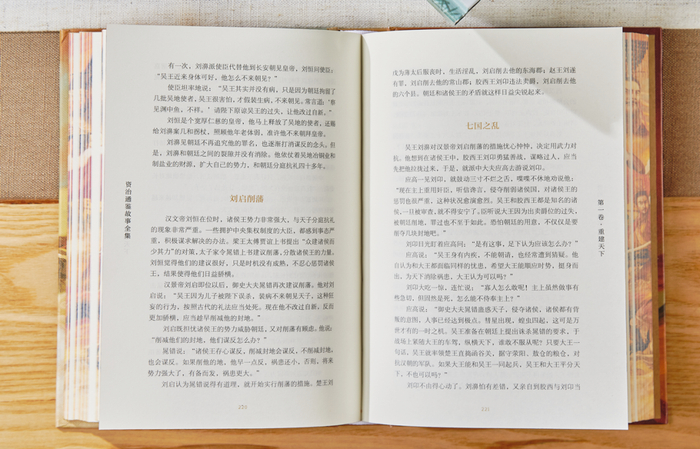 有一次，刘濞派使臣代替他到长安朝见皇帝，刘恒问使臣：
“吴王近来身体可好，他怎么不来朝见？”
使臣坦率地说：“吴王其实并没有病，只是因为朝廷拘留了
几批吴地使者，吴王很害怕，才假装生病，不来朝见。常言道：‘察
见渊中鱼，不祥。’请陛下原谅吴王的过失，让他改过自新。”
刘恒是个宽厚仁慈的皇帝，他马上释放了吴地的使者，还赐
给刘濞案几和拐杖，照顾他年老体弱，准许他不来朝拜皇帝。
刘濞见朝廷不再追究他的罪名，也逐渐打消谋反的念头。但
是，刘濞和朝廷之间的裂隙并没有消除。他依仗着吴地冶铜业和
制盐业的财源，扩大自己的势力，和朝廷分庭抗礼四十多年。
刘启削藩
汉文帝刘恒在位时，诸侯王势力非常强大，与天子分庭抗礼
的现象非常严重。一些拥护中央集权制度的大臣，都感到事态严
重，积极谋求解决的办法。梁王太傅贾谊上书提出“众建诸侯而
少其力”的对策，太子家令晁错上书建议削藩，分散诸侯王的力量。
刘恒觉得他们的建议很好，只是时机没有成熟，不忍心惩罚诸侯
王，结果使得他们日益骄横。
汉景帝刘启即位以后，御史大夫晁错再次建议削藩。他对刘
启说：“吴王因为儿子被陛下误杀，装病不来朝见天子，这种狂
妄的行为，按照古代的礼法应当处死。现在他不改过自新，反而
更加骄横，应当趁早削减他的封地。”
刘启既担忧诸侯王的势力威胁朝廷，又对削藩有顾虑，他说：
“削减他们的封地，他们谋反怎么办？”
晁错说：“诸侯王存心谋反，削减封地会谋反，不削减封地，
也会谋反。如果削他的地，他早一点反，祸患还小，否则，将来
势力强大了，有备而发，祸患更大。”
刘启认为晁错说得有道理，就开始实行削藩的措施。楚王刘
资治通鉴故事全集
戊为薄太后服丧时，生活淫乱，刘启削去他的东海郡；赵王刘遂
有罪，刘启削去他的常山郡；胶西王刘印违法卖爵，刘启削去他
的六个县。朝廷和诸侯王的矛盾就这样日益尖锐起来。
七国之乱
吴王刘濞对汉景帝刘启削藩的措施忧心忡忡，决定用武力对
抗。他想到在诸侯王中，胶西王刘印勇猛善战，谋略过人，应当
先把他拉拢过来，于是，就派中大夫应高去游说刘印。
应高一见刘印，就鼓动三寸不烂之舌，喋喋不休地劝说他：
“现在主上重用奸臣，听信谗言，侵夺削弱诸侯国，对诸侯王的
惩罚也很严重，这种状况愈演愈烈。吴王和胶西王都是知名的诸
侯，一旦被审查，就不得安宁了。臣听说大王因为出卖爵位的过失，
被朝廷削地，罪过也不至于如此，恐怕朝廷的用意，不仅仅是要
削夺几块封地吧。”
刘印目光盯着应高问：“是有这事，足下认为应该怎么办？”
应高说：“吴王身有内疾，不能朝请，他经常遭到猜疑。他
自认为和大王都面临同样的忧患，希望大王能顺应时势，挺身而
出，为天下消除祸患，大王认为可以吗？”
刘印大吃一惊，连忙说：“寡人怎么敢呢！主上虽然做事有
些急切，但固然是死，怎么能不侍奉主上？”
应高说：“御史大夫晁错蛊惑天子，侵夺诸侯，诸侯都有背
叛的意图，人事已经达到极点。彗星出现，蝗虫四起，这可是万
世才有的一时之机。吴王准备在朝廷上提出诛杀晁错的要求，于
战场上紧随大王的车驾，纵横天下，谁敢不服从呢？只要大王一
句话，吴王就率领楚王直捣函谷关，据守荥阳、敖仓的粮仓，对
抗汉朝的军队。如果大王能和吴王一同起兵，吴王和大王平分天
下，不也可以吗？”
刘印不由得心动了。刘濞怕有差错，又亲自到胶西与刘印当
第一卷·重建天下